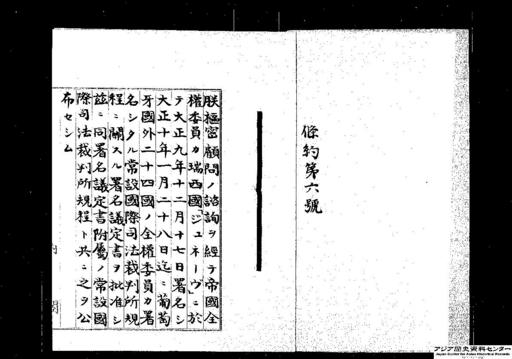 條約第六號
朕樞密顧問ノ諮詢ヲ經テ帝國全
權委員カ瑞西國ジュネーヴニ於
テ大正九年十二月十七日署名シ
大正十年一月二十八日迄ニ葡萄
牙國外二十四國ノ全權委員カ署
名シタル常設國際司法裁判所規
程ニ關スル署名議定書ヲ批准シ
玆ニ同署名議定書附屬ノ常設國
際司法裁判所規程ト共ニ之ヲ公
布セシム
内閣
アジア歴史資料センター
Japan Center for Asian Historical Records